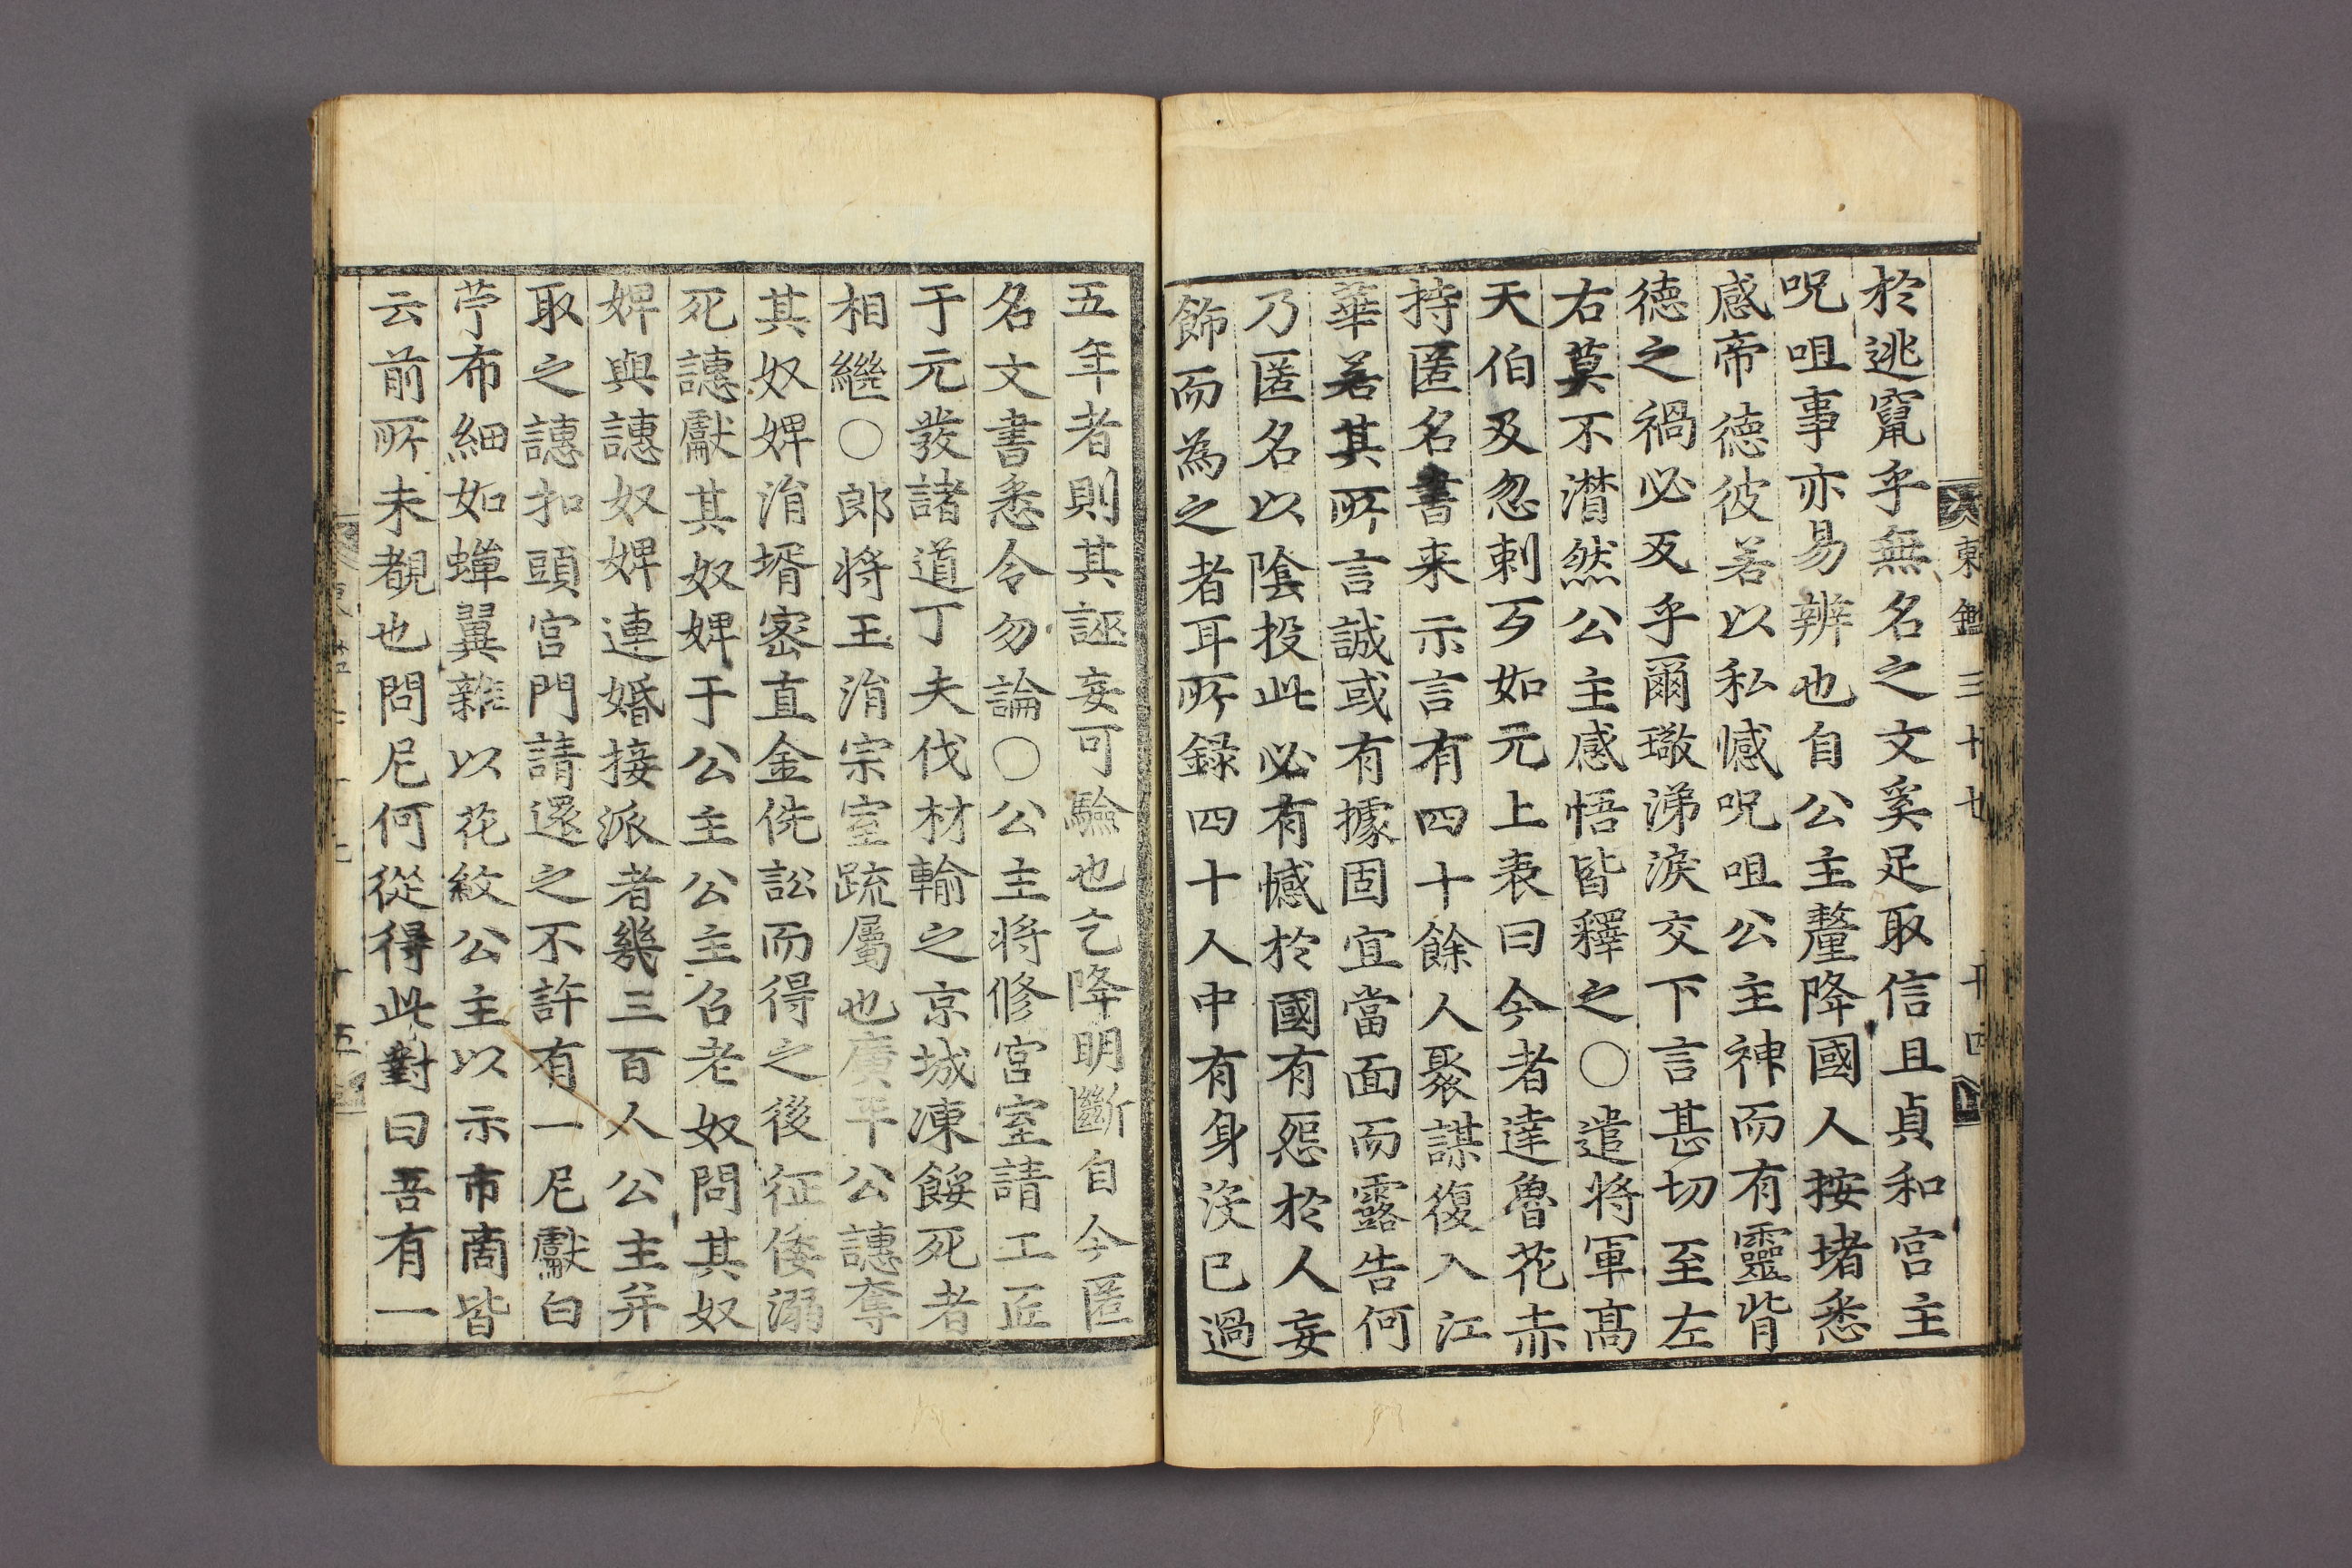 東鑑三十七 十四
於逃竄乎無名之文奚足取信且貞和宮主
呪咀事亦易辨也自公主釐降國人按堵悉
感帝德彼若以私憾呪咀公主神而有靈背
德之禍必及乎爾璥涕淚交下言甚切至左
右莫不潸然公主感悟皆釋之○遣將軍高
天伯及忽剌歹如元上表曰今者達魯花赤
持匿名書来示言有四十餘人聚謀復入江
華若其所言誠或有據固宜當面而露告何
乃匿名以陰投此必有憾於國有怨於人妄
飾而為之者耳所録四十人中有身沒已過
五年者則其誣妄可驗也乞降明斷自今匿
名文書悉令勿論○公主将修宮室請工匠
于元發諸道丁夫伐材輸之京城凍餒死者
相繼○郎将王涓宗室疏屬也廣平公譓奪
其奴婢涓壻密直金侁訟而得之後征倭溺
死譓獻其奴婢于公主公主召老奴問其奴
婢與譓奴婢連婚接派者幾三百人公主并
取之譓扣頭宮門請還之不許有一尼獻白
苧布細如蟬翼雜以花紋公主以示市商皆
云前所未覩也問尼何從得此對曰吾有一
十五